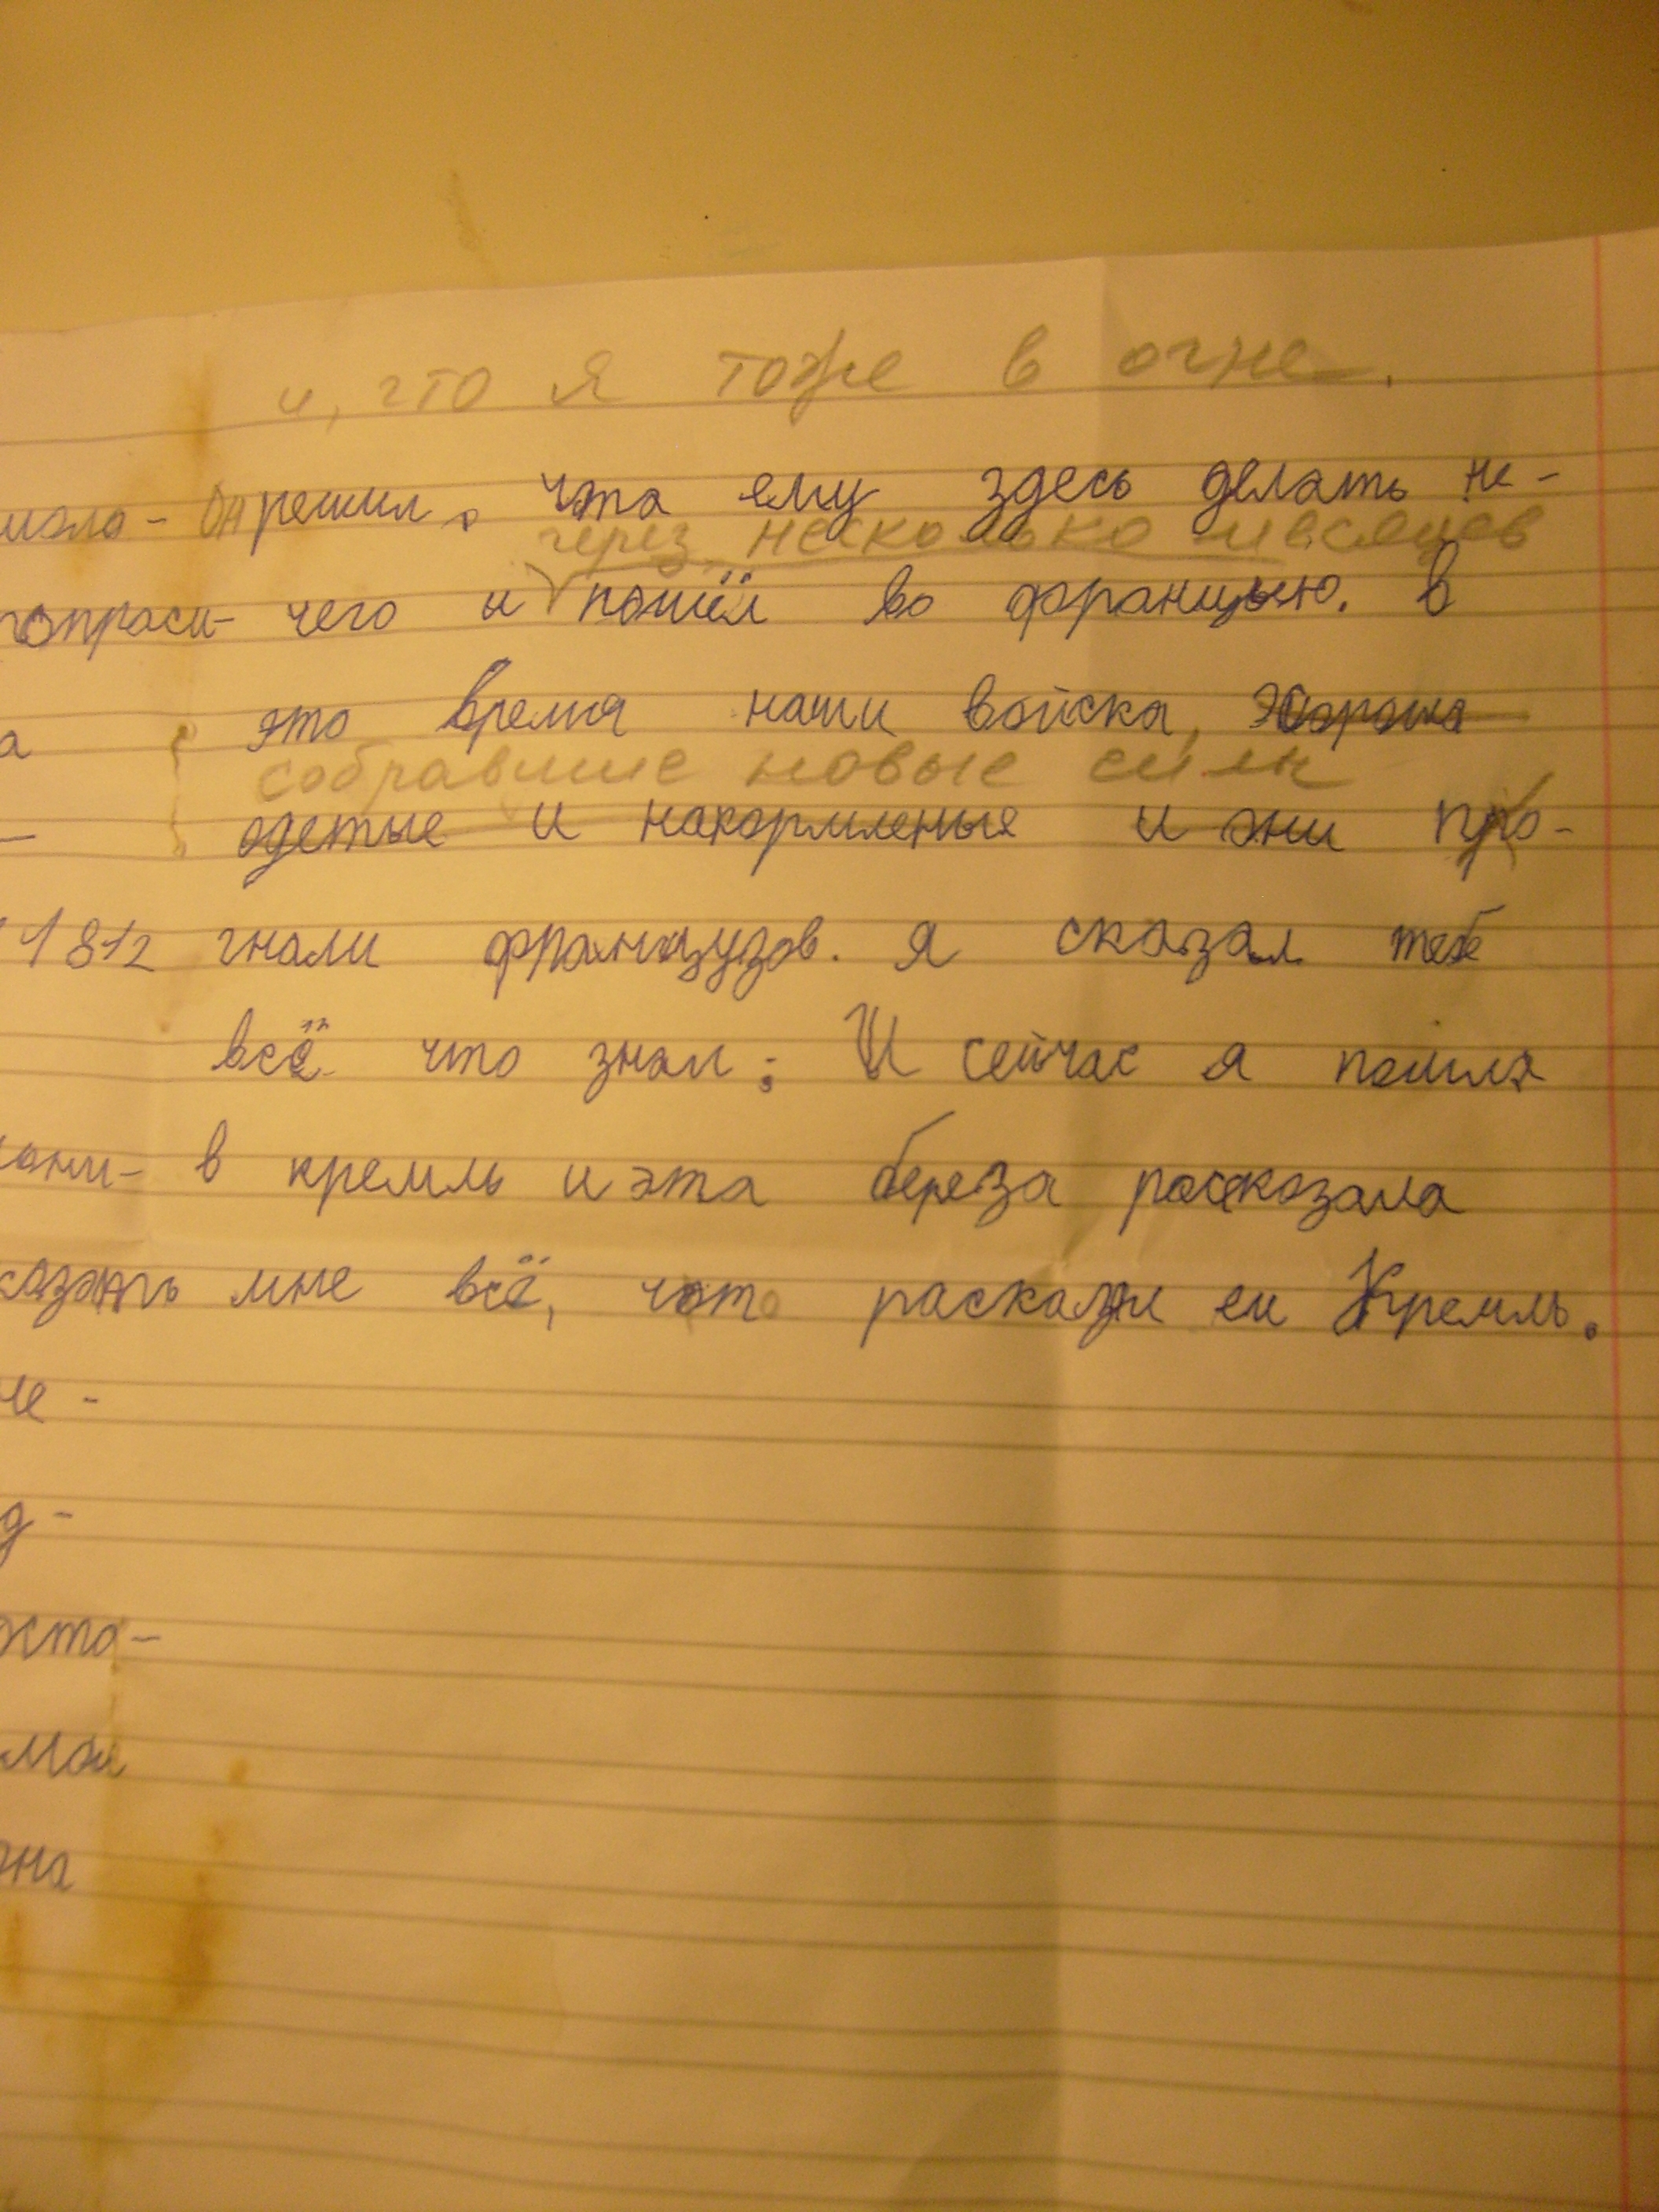 и, что я тоже в огне.
Он решил, что ему здесь делать не-
через несколько месяцев
чего и пошёл во францыю. В
это время наши войска, хорошо
собравшие новые силы
одетые и накормленые и они про-
1812 гнали французов. Я сказал тебе
всё что знал; И сейчас я пошла
в кремль и эта береза рассказала
казать мне всё, что расказал ей Кремль.
не-
д-
оста-
мои
она